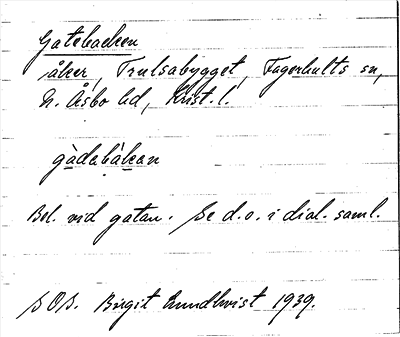 Gatebacken
åker, Trulsabygget, Fagerhults sn,
N. Åsbo hd, Krist. l.
gàdabàkan
Bel. vid gatan. Se d.o. i dial. saml.
SOS. Birgit Lundkvist 1939.